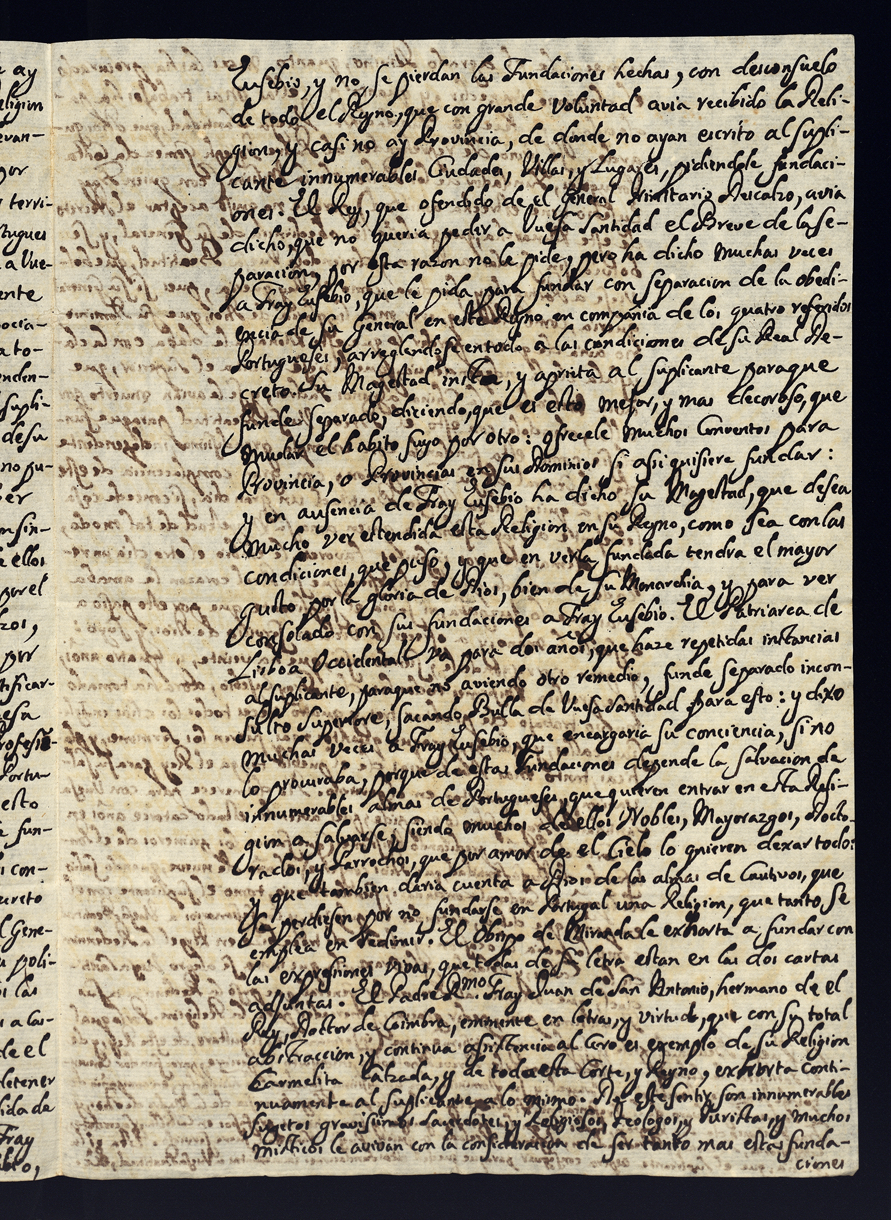 Eusebio, y no se pierdan las Fundaciones hechas, con desconsuelo
de todo el Reyno, que con grande voluntad avia recibido la Reli-
gion, y casi no ay Provincia, de donde no ayan escrito al supli-
cante innumerables Ciudades, Villas, y Lugares, pidiendole fundaci-
ones. El Rey, que ofendido de el General Trinitario Descalzo, avia
dicho, que no queria pedir a Vuesa Santidad el Breve de la se-
paracion, por esta razon no le pide, pero ha dicho muchas veces
a Fray Eusebio, que le pida para fundar con separacion de la obedi-
encia de su General en este Reyno en compañia de los quatro referidos
Portugueses, arreglendose en todo a las condiciones de su Real De-
creto. Su Magestad insta, y aprieta al suplicante paraque
funde separado, diciendo, que es esto mejor, y mas decoroso, que
mudar el habito suyo por otro: ofrecele muchos Conventos para
Provincia, o Provincias en sus Dominios si asi quisiere fundar:
y en ausencia de Fray Eusebio ha dicho su Magestad, que desea
mucho ver estendida esta Religion en su Reyno, como sea con las
condiciones, que puso, y que en verla fundada tendra el mayor
gusto por la gloria de Dios, bien de su Monarchia, y para ver
consolado con sus fundaciones a Fray Eusebio. El Patriarca de
Lisboa Occidental va para dos años, que haze repetidas instancias
al suplicante, paraque no aviendo otro remedio, funde separado incon-
sulto Superiore, sacando Bulla de Vuesa Santidad para esto: y dixo
muchas veces a Fray Eusebio, que encargaria su conciencia, si no
lo procuraba, porque de estas Fundaciones depende la salvacion de
innumerables almas de Portugueses, que quieren entrar en esta Reli-
gion a salvarse, siendo muchos de ellos Nobles, Mayorazgos, Docto-
rados, y Parrochos, que por amor de el Cielo lo quieren dexar todo:
y que tambien daria cuenta a Dios de las almas de Cautivos, que
se perdiesen por no fundarse en Portugal una Religion, que tanto se
emplea en redimir. El Obispo de Miranda le exhorta a fundar con
las expresiones vivas, que todas de su letra estan en las dos cartas
adjuntas. El Padre R.mo Fray Juan de San Antonio, hermano de el
Rey, Doctor de Coimbra, eminente en letras, y virtudes, que con su total
abstraccion, y continua asistencia al Coro es exemplo de su Religion
Carmelita Calzada, y de toda esta Corte, y Reyno, exhorta conti-
nuamente al suplicante a lo mismo. De este sentir son innumerables
Sugetos gravisimos Sacerdotes, y Religiosos, Teologos, y Juristas, y muchos
misticos le avivan con la consideracion de ser tanto mas estas funda-
ciones